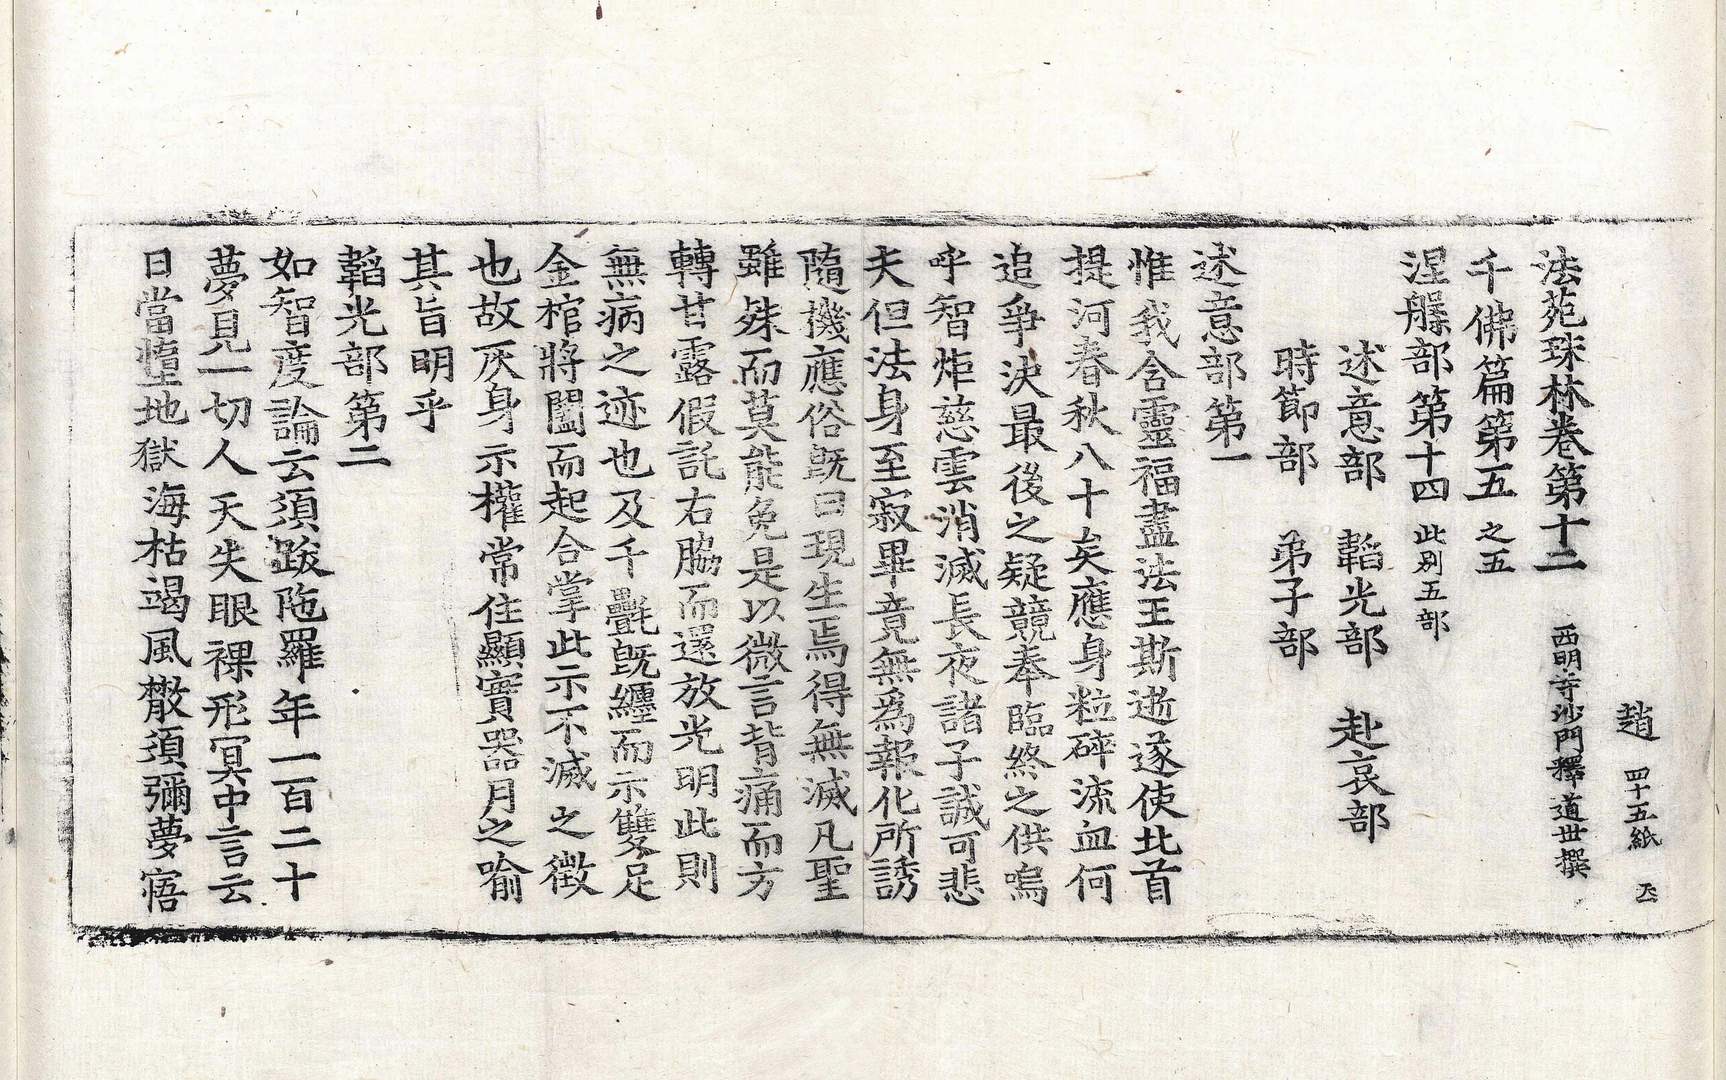 趙 四十五紙
法苑珠林卷第十二 西明寺沙門釋道世撰
千佛篇第五之五
涅槃部第十四 此別五部
述意部 韜光部 赴哀部
時節部 弟子部
述意部第一
惟我含靈福盡法王斯逝遂使北首
提河春秋八十矣應身粒碎流血何
追爭決最後之疑競奉臨終之供嗚
呼智炬慈雲消滅長夜諸子誠可悲
夫但法身至寂畢竟無爲報化所誘
隨機應俗旣曰現生焉得無滅凡聖
雖殊而莫能免是以微言背痛而方
轉甘露假託右脇而還放光明此則
無病之迹也及千㲲旣纏而示雙足
金棺將闔而起合掌此示不滅之徵
也故灰身示權常住顯實器月之喻
其旨明乎
韜光部第二
如智度論云須跋陁羅年一百二十
夢見一切人天失眼裸形冥中言云
日當墮地獄海枯竭風散須彌夢寤